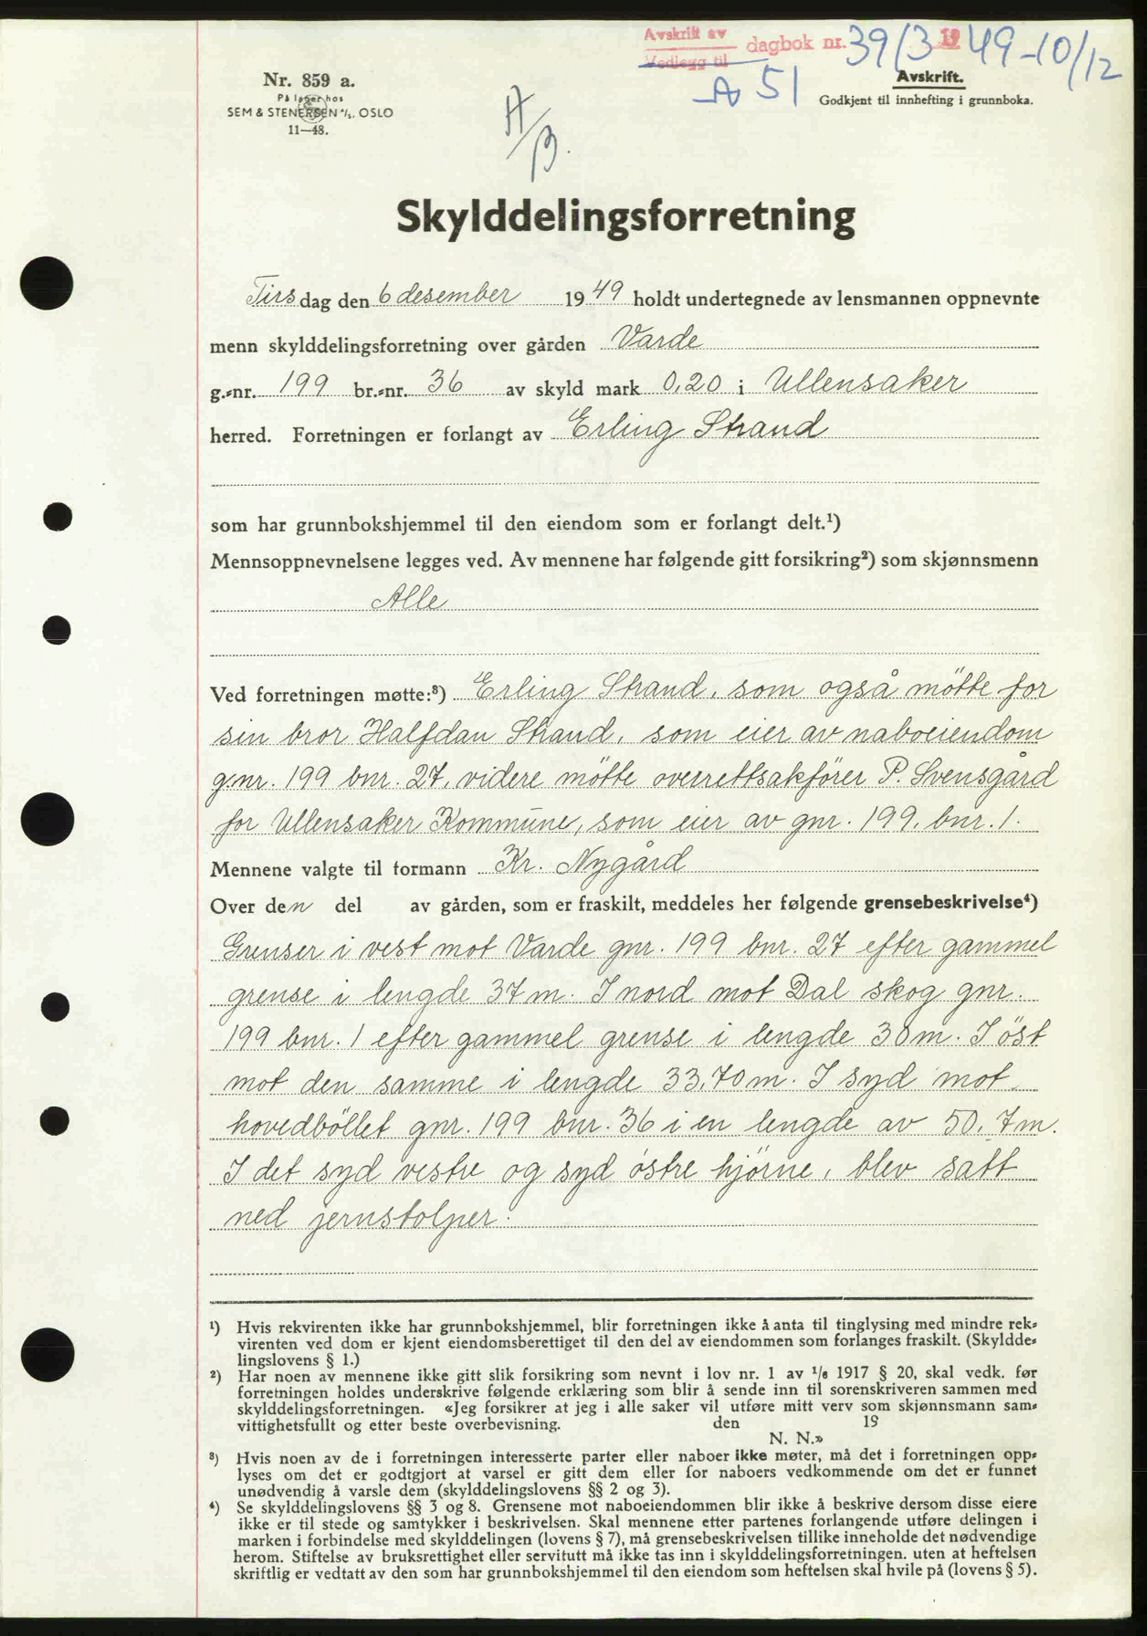 Avskrift av
Vedlegg til dagbok nr. 3913 1949-10/12
A 51
Avskrift.
Godkjent til innhefting i grunnboka.
Nr. 859 a.
På lager hos
SEM & STENERSEN A/S. OSLO
11—48.
A/B.
Skylddelingsforretning
Tirsdag den 6 desember 1949 holdt undertegnede av lensmannen oppnevnte
menn skylddelingsforretning over gården Varde
g.-nr. 199 br.-nr. 36 av skyld mark 0,20 i Ullensaker
herred. Forretningen er forlangt av Erling Strand
som har grunnbokshjemmel til den eiendom som er forlangt delt.¹)
Mennsoppnevnelsene legges ved. Av mennene har følgende gitt forsikring²) som skjønnsmenn
Alle
Ved forretningen møtte:³) Erling Strand, som også mötte for
sin bror Halfdan Strand, som eier av naboeiendom
g.nr. 199 bnr. 27, videre mötte overrettsakförer P. Svensgård
for Ullensaker Kommune, som eier av gnr. 199. bnr. 1.
Mennene valgte til formann Kr. Nygård
Over den del av gården, som er fraskilt, meddeles her følgende grensebeskrivelse⁴)
Grenser i vest mot Varde gnr. 199 bnr. 27 efter gammel
grense i lengde 37 m. I nord mot Dal skog gnr.
199 bnr. 1 efter gammel grense i lengde 30 m. I öst
mot den samme i lengde 33,70 m. I syd mot
hovedböllet gnr. 199 bnr. 36 i en lengde av 50.7 m.
I det syd vestre og syd östre hjörne, blev satt
ned jernstolper.
¹) Hvis rekvirenten ikke har grunnbokshjemmel, blir forretningen ikke å anta til tinglysing med mindre rek-
virenten ved dom er kjent eiendomsberettiget til den del av eiendommen som forlanges fraskilt. (Skyldde-
lingslovens § 1.)
²) Har noen av mennene ikke gitt slik forsikring som nevnt i lov nr. 1 av ¹/₆ 1917 § 20, skal vedk. før
forretningen holdes underskrive følgende erklæring som blir å sende inn til sorenskriveren sammen med
skylddelingsforretningen. «Jeg forsikrer at jeg i alle saker vil utføre mitt verv som skjønnsmann sam-
vittighetsfullt og etter beste overbevisning. den 19
N. N.»
³) Hvis noen av de i forretningen interesserte parter eller naboer ikke møter, må det i forretningen opp-
lyses om det er godtgjort at varsel er gitt dem eller for naboers vedkommende om det er funnet
unødvendig å varsle dem (skylddelingslovens §§ 2 og 3).
⁴) Se skylddelingslovens §§ 3 og 8. Grensene mot naboeiendommen blir ikke å beskrive dersom disse eiere
ikke er til stede og samtykker i beskrivelsen. Skal mennene etter partenes forlangende utføre delingen i
marken i forbindelse med skylddelingen (lovens § 7), må grensebeskrivelsen tillike inneholde det nødvendige
herom. Stiftelse av bruksrettighet eller servitutt må ikke tas inn i skylddelingsforretningen. uten at heftelsen
skriftlig er vedtatt av den som har grunnbokshjemmel til den eiendom som heftelsen skal hvile på (lovens § 5).